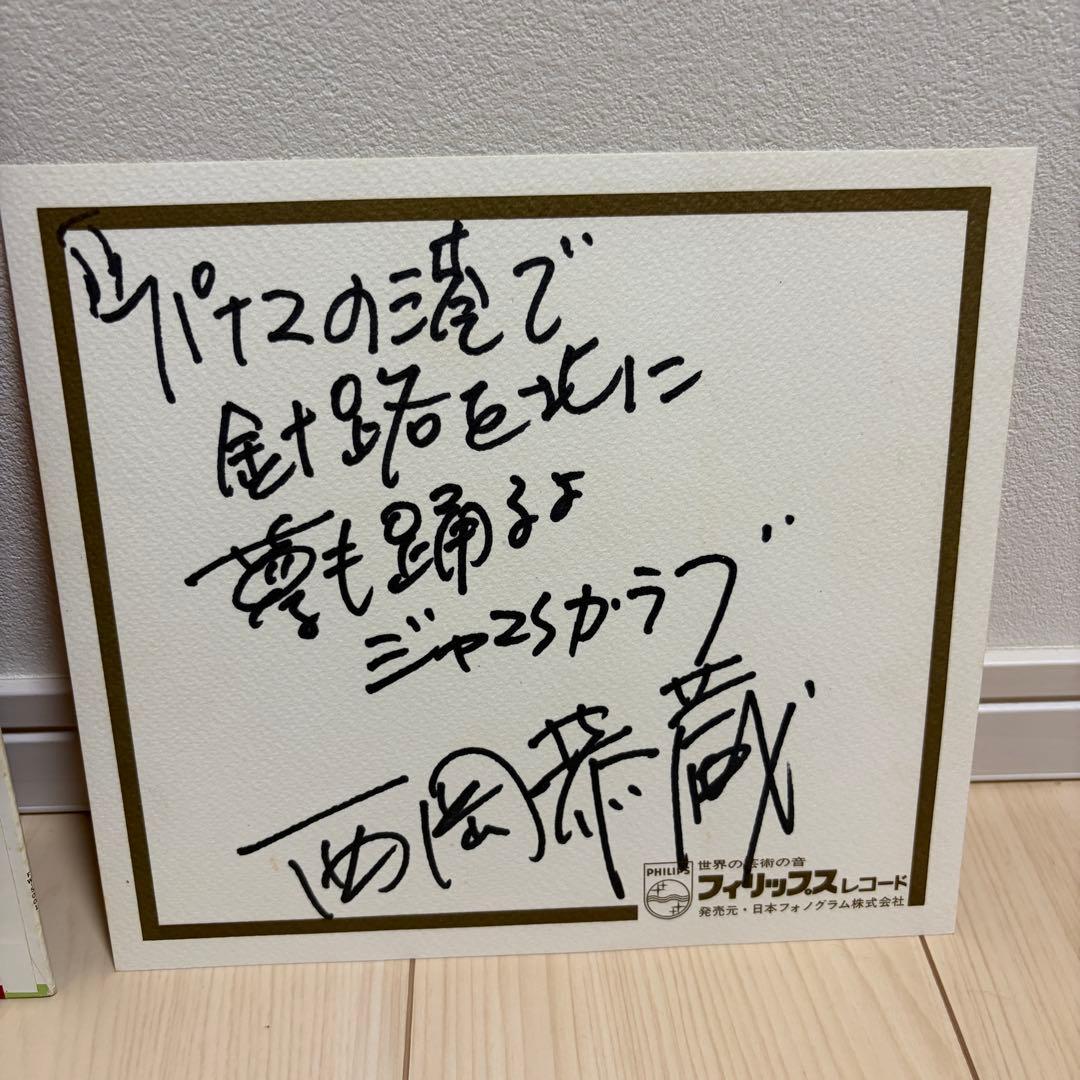 〽パナマの港で
針路を北に
夢も踊るよ
ジャマイカラブ
西岡恭蔵
PHILIPS
世界の芸術の音
フィリップスレコード
発売元・日本フォノグラム株式会社